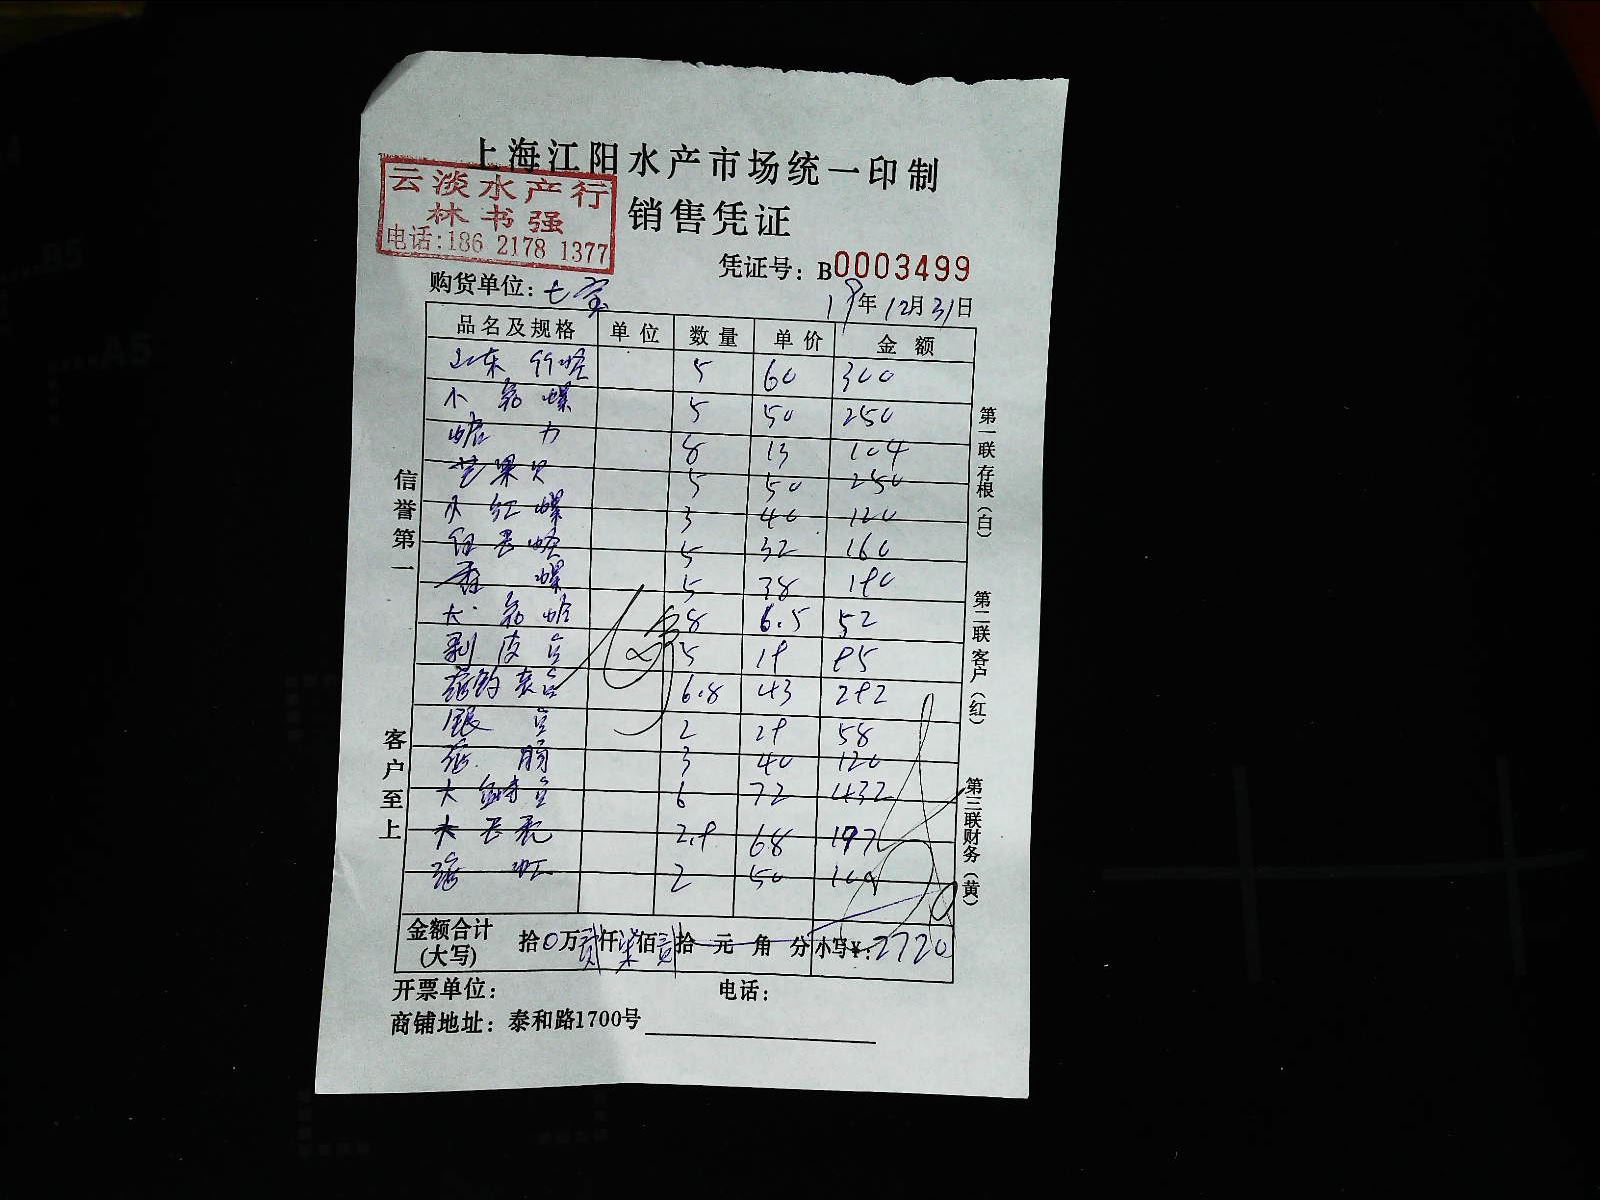 上海江阳水产市场统一印制
云淡水产行
林书强
电话:186 2178 1377
销售凭证
凭证号：B0003499
购货单位：七宝 19年12月31日
品名及规格 单位 数量 单价 金额
山东 5 60 300
小 螺 5 50 250
8 13 104
芒果贝 5 50 250
小红螺 3 40 120
5 32 160
香螺 5 38 190
大 8 6.5 52
剥皮鱼 5 19 95
6.8 43 292
银鱼 2 29 58
3 40 120
大 鱼 6 72 432
大 2.9 68 197
2 50 100
金额合计
(大写) 拾0万贰仟柒佰贰拾元角分 小写¥:2720
开票单位： 电话：
商铺地址：泰和路1700号
信誉第一
客户至上
第一联 存根（白）
第二联 客户（红）
第三联 财务（黄）